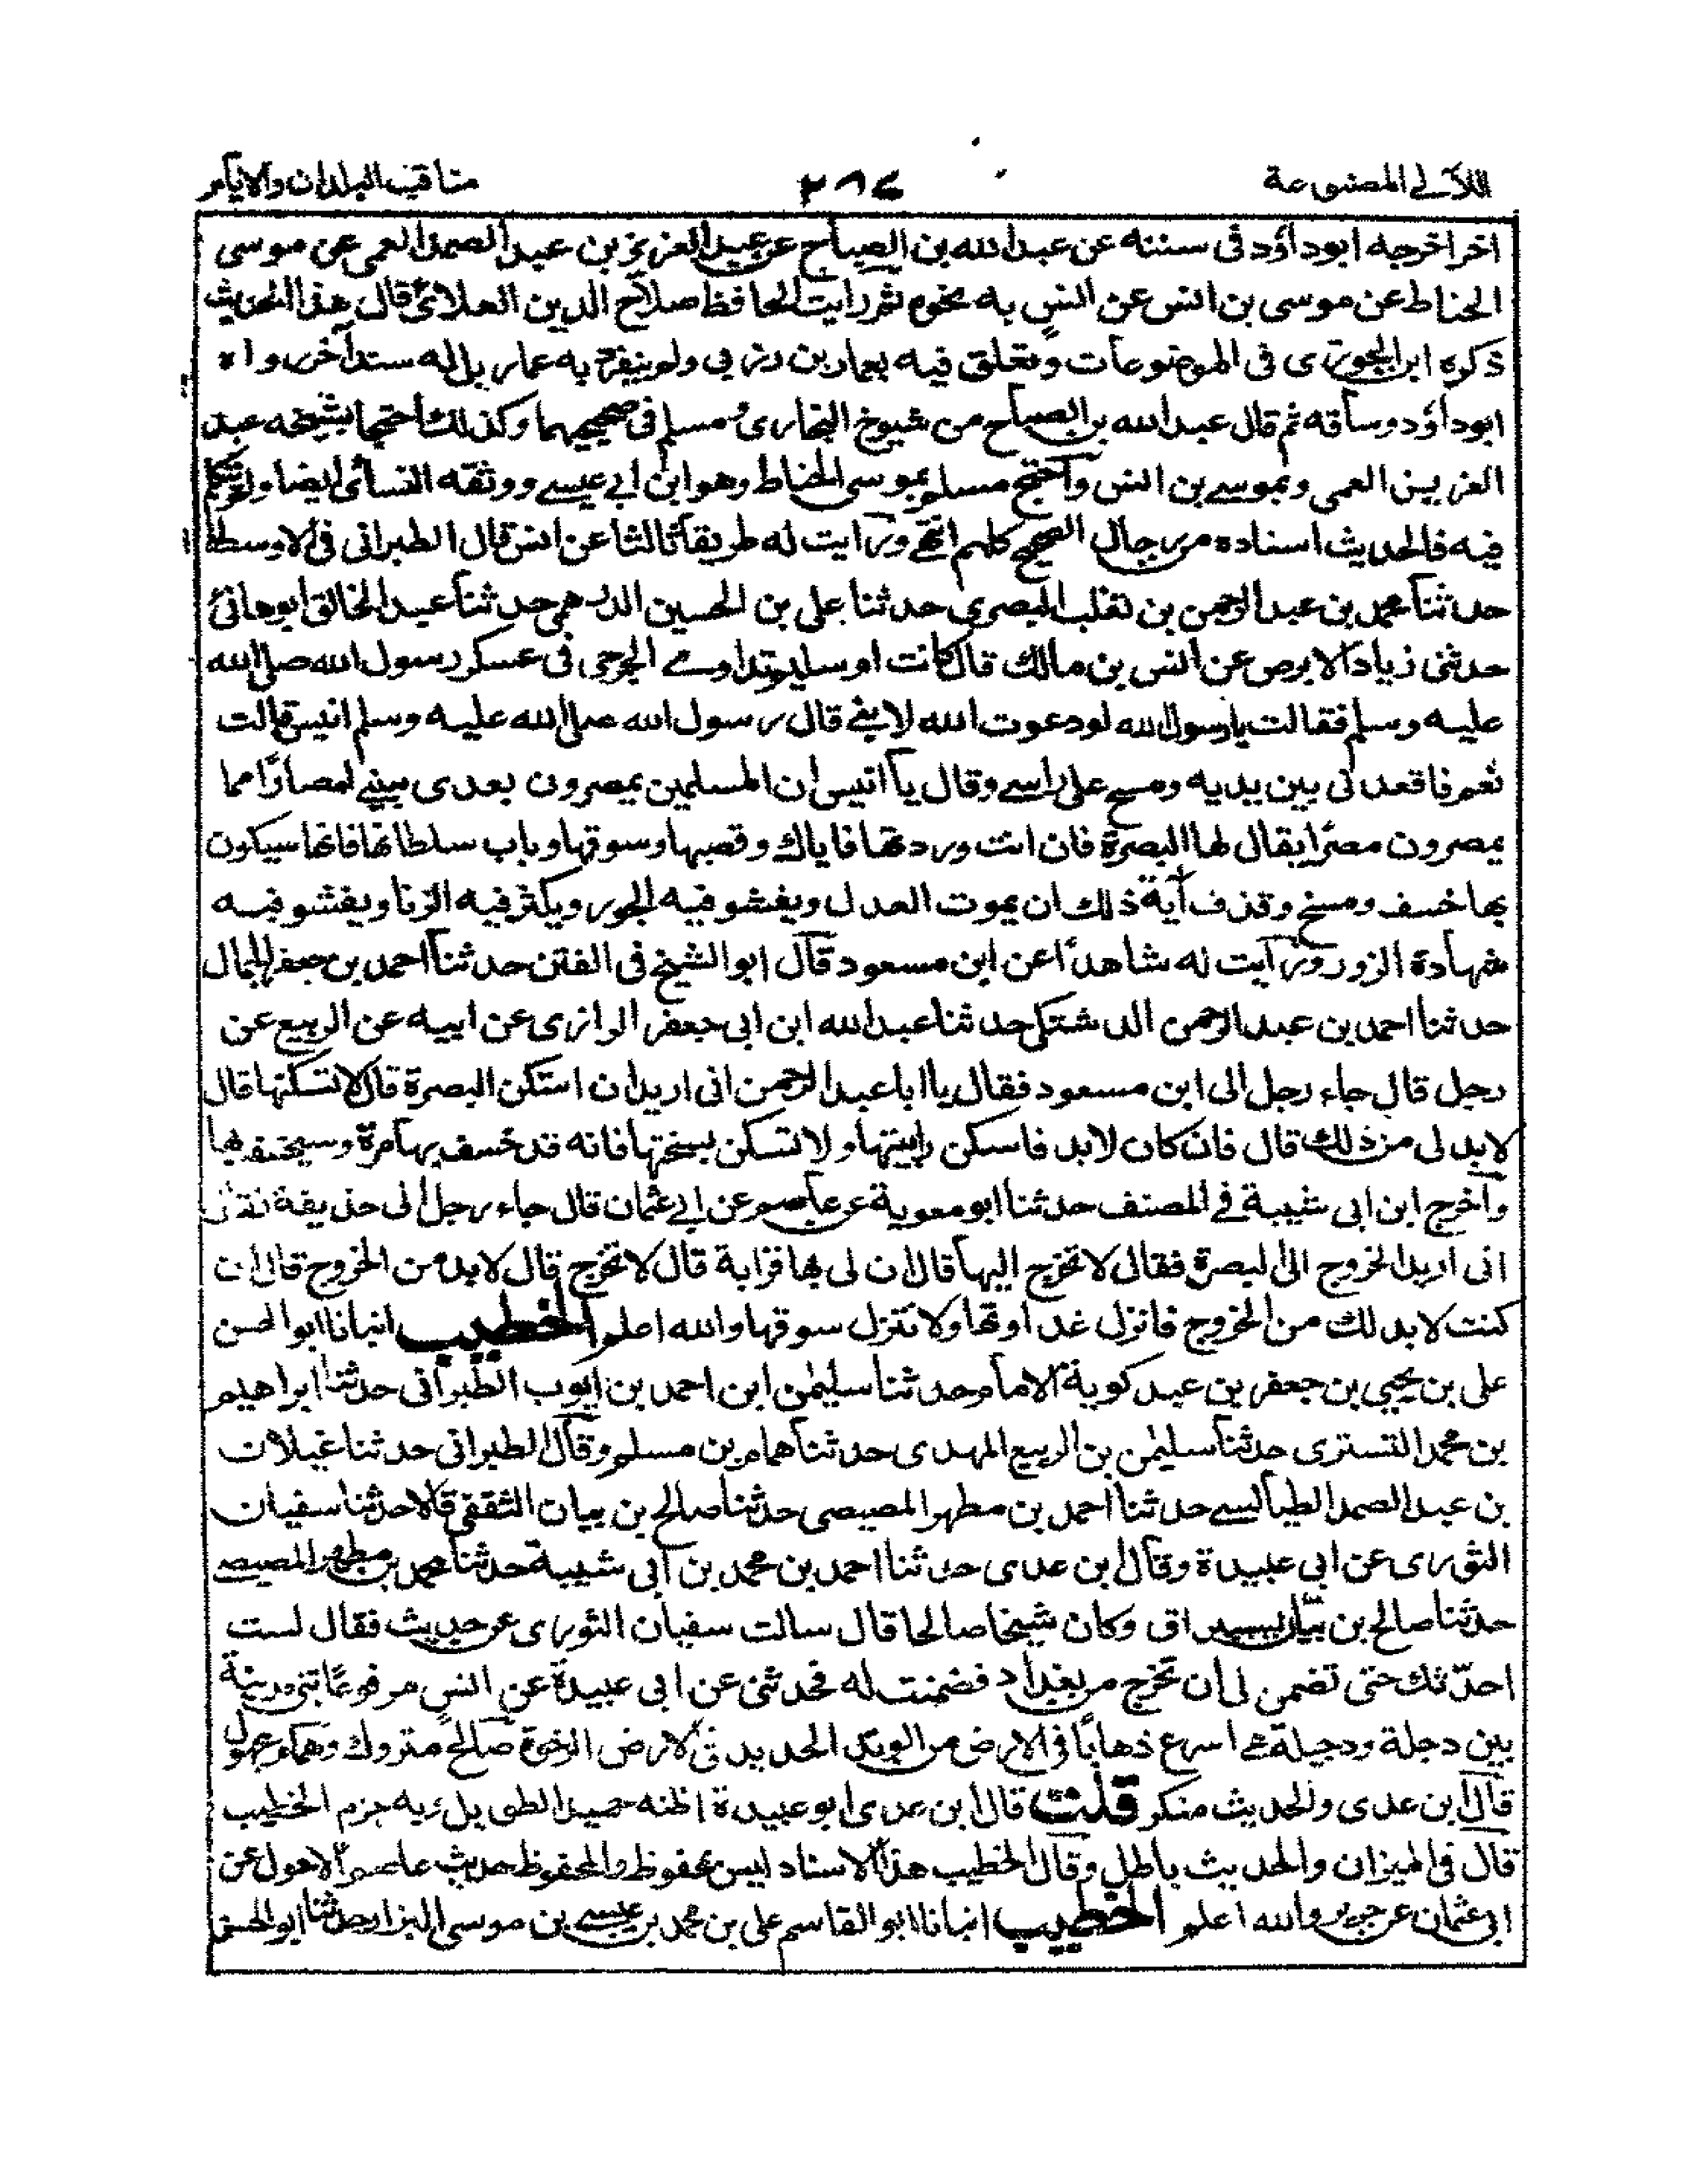 اللآلے المصنوعة ٢٨٤ مناقب البلدان والایام
اخر اخرجه ابوداؤد فی سننه عن عبدالله بن الصباح عن عبدالعزیز بن عبدالصمد العمی عن موسی
الحناط عن موسی بن انس عن انس به نحوه ثم رایت الحافظ صلاح الدین العلائی قال هذا الحدیث
ذکره ابن الجوزی فی الموضوعات وتعلق فیه بعمار بن زربی ولم ینفرد به عمار بل له سند آخر رواه
ابوداؤد وساقه ثم قال عبدالله بن الصباح من شیوخ البخاری ومسلم فی صحیحیهما وکذلك احتجا بشیخه عبد
العزیز العمی وبموسے بن انس واحتج مسلم بموسی الحناط وهو ابن ابے عیسے ووثقه النسائی ایضا ولم یتکلم
فیه فالحدیث اسناده من رجال الصحیح کلهم انتهے ورایت له طریقا ثالثا عن انس قال الطبرانی فی الاوسط
حدثنا محمد بن عبدالرحمن بن تغلب البصری حدثنا علی بن الحسین الدرهمی حدثنا عبدالخالق ابوهانئ
حدثنی زیاد الابرص عن انس بن مالك قال کانت ام سلیم تداوے الجرحی فی عسکر رسول الله صلی الله
علیه وسلم فقالت یا رسول الله لو دعوت الله لابنے قال رسول الله صلی الله علیه وسلم انیس قالت
نعم فاقعدنی بین یدیه ومسح علی راسے وقال یا انیس ان المسلمین یمصرون بعدی امصارا مما
یمصرون مصرا یقال لها البصرة فان انت وردتها فایاك وقصبها وسوقها وباب سلطانها فانها سیکون
بها خسف ومسخ وقذف آیة ذلك ان یموت العدل ویفشو فیه الجور ویکثر فیه الزنا ویفشو فیه
شهادة الزور ورایت له شاهدا عن ابن مسعود قال ابوالشیخ فی الفتن حدثنا احمد بن جعفر الجمال
حدثنا احمد بن عبدالرحمن الدشتکی حدثنا عبدالله ابن ابی جعفر الرازی عن ابیه عن الربیع عن
رجل قال جاء رجل الی ابن مسعود فقال یا ابا عبدالرحمن انی ارید ان استکن البصرة قال لا تسکنها قال
لا بد لی من ذلك قال فان کان لابد فاسکن رابیتها ولا تسکن بسبختها فانه قد خسف بها مرة وسیخسف بها
واخرج ابن ابی شیبة فے المصنف حدثنا ابو معویة عن عاصم عن ابے عثمان قال جاء رجل الی حذیفة فقال
انی ارید الخروج الی البصرة فقال لا تخرج الیها قال ان لی بها قرابة قال لا تخرج قال لابد من الخروج قال ان
کنت لابد لك من الخروج فانزل غداوتها ولا تنزل سوقها والله اعلم الخطیب انبانا ابوالحسن
علی بن یحیی بن جعفر بن عبدکویة الامام حدثنا سلیمٰن ابن احمد بن ایوب الطبرانی حدثنا ابراهیم
بن محمد التستری حدثنا سلیمٰن بن الربیع المهدی حدثنا همام بن مسلم وقال الطبرانی حدثنا غیلان
بن عبدالصمد الطیالسے حدثنا احمد بن مطهر المصیصی حدثنا صالح بن بیان الثقفی قالا حدثنا سفیان
الثوری عن ابی عبیدة وقال ابن عدی حدثنا احمد بن محمد بن ابی شیبة حدثنا محمد بن مطهر المصیصے
حدثنا صالح بن بیان السیراق وکان شیخا صالحا قال سالت سفیان الثوری عن حدیث فقال لست
احدثك حتی تضمن لی ان تخرج من بغداد فضمنت له فحدثنی عن ابی عبیدة عن انس مرفوعا تبنی مدینة
بین دجلة ودجیلة هے اسرع ذهابا فی الارض من الوتد الحدید فی الارض الرخوة صالح متروك وهمام مجهول
قال ابن عدی والحدیث منکر قلت قال ابن عدی ابوعبیدة اظنه حمید الطویل وبه جزم الخطیب
قال فی المیزان والحدیث باطل وقال الخطیب هذا الاسناد لیس بمحفوظ والمحفوظ حدیث عاصم الاحول عن
ابی عثمان عن جریر والله اعلم الخطیب انبانا ابوالقاسم علی بن محمد بن عیسے بن موسی البزار حدثنا ابوالحسن